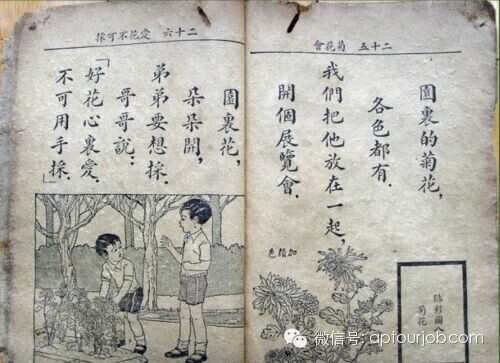 二十五 菊花會
園裏的菊花，
各色都有．
我們把他放在一起，
開個展覽會．
加顏色
貼彩圖
菊花
二十六 愛花不可採
園裏花，
朵朵開，
弟弟要想採．
哥哥說：
「好花心裏愛．
不可用手採．」
微信号: aptourjob.com